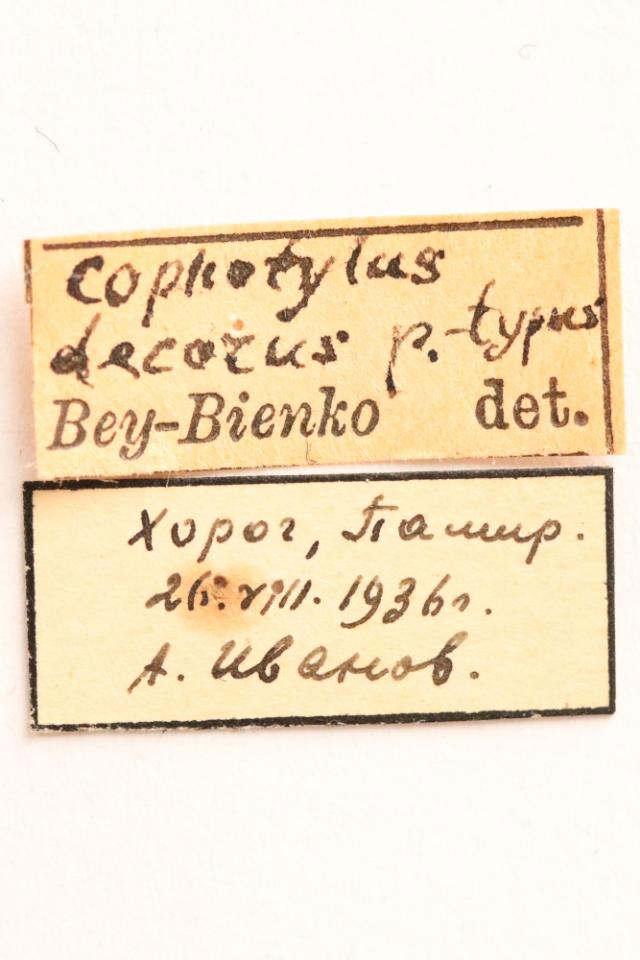 Cophotylus
decorus p.-typus
Bey-Bienko det.
Хорог, Памир.
26.VIII.1936г.
А. Иванов.